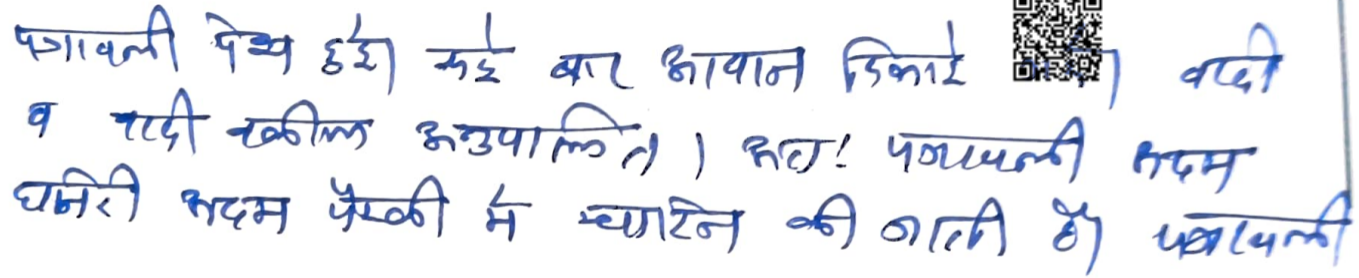 पत्रावली पेश हुई। कई बार आवाज दिलाई वादी
व वादी वकील अनुपस्थित। अतः पत्रावली अदम
हाजरी अदम पैरवी में खारिज की जाती है। पत्रावली